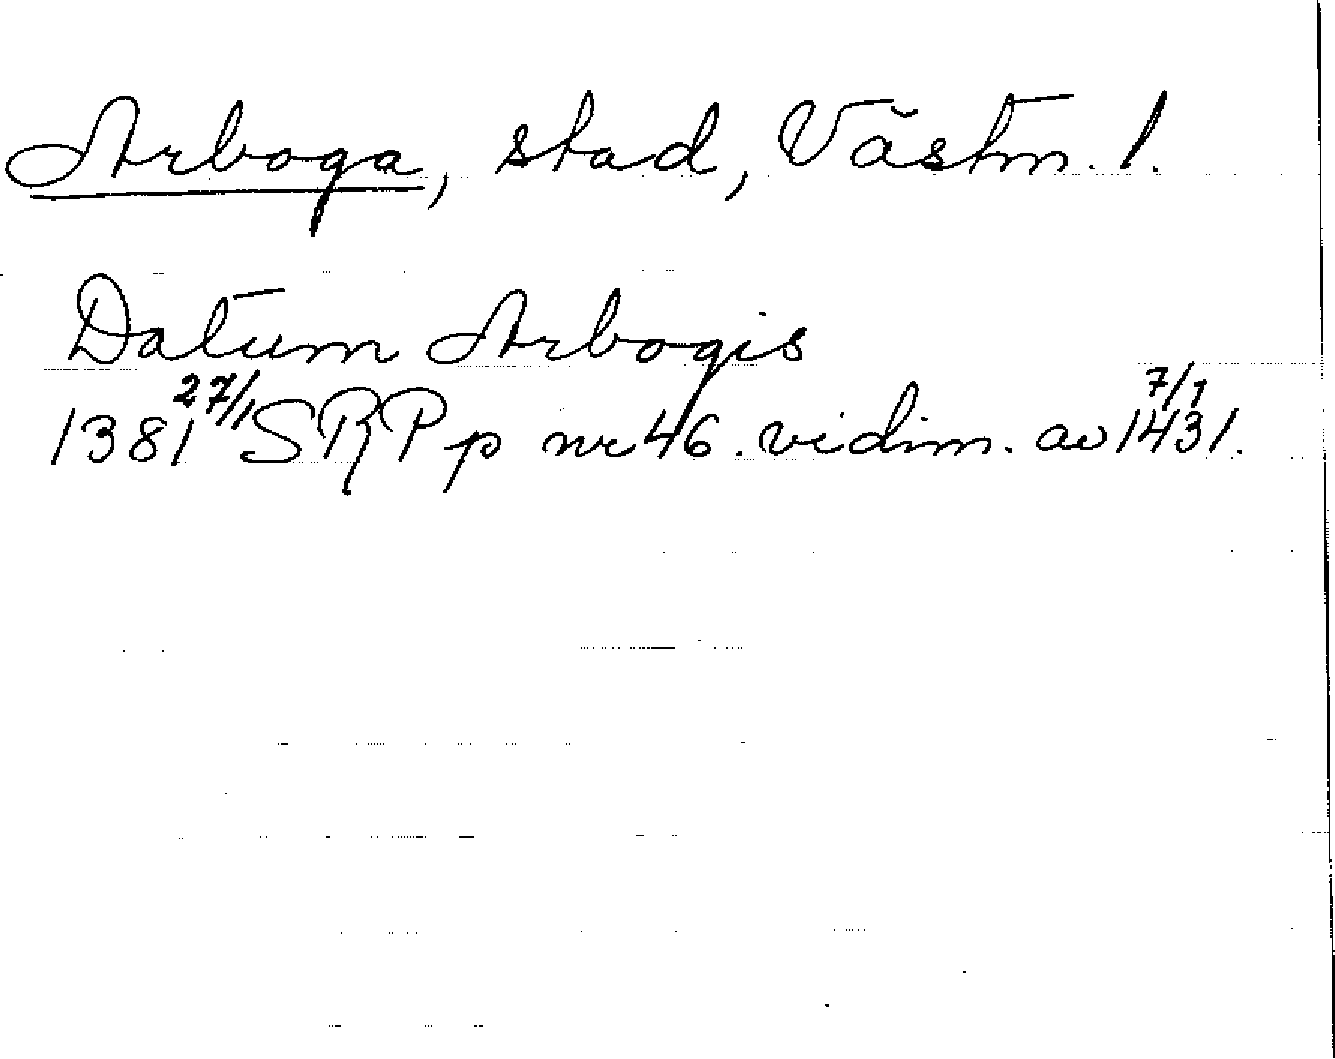 Arboga, stad, Västm. l.
Datum Arbogis
1381 27/1 SRP p nr 46. vidim. av 1431 7/7.